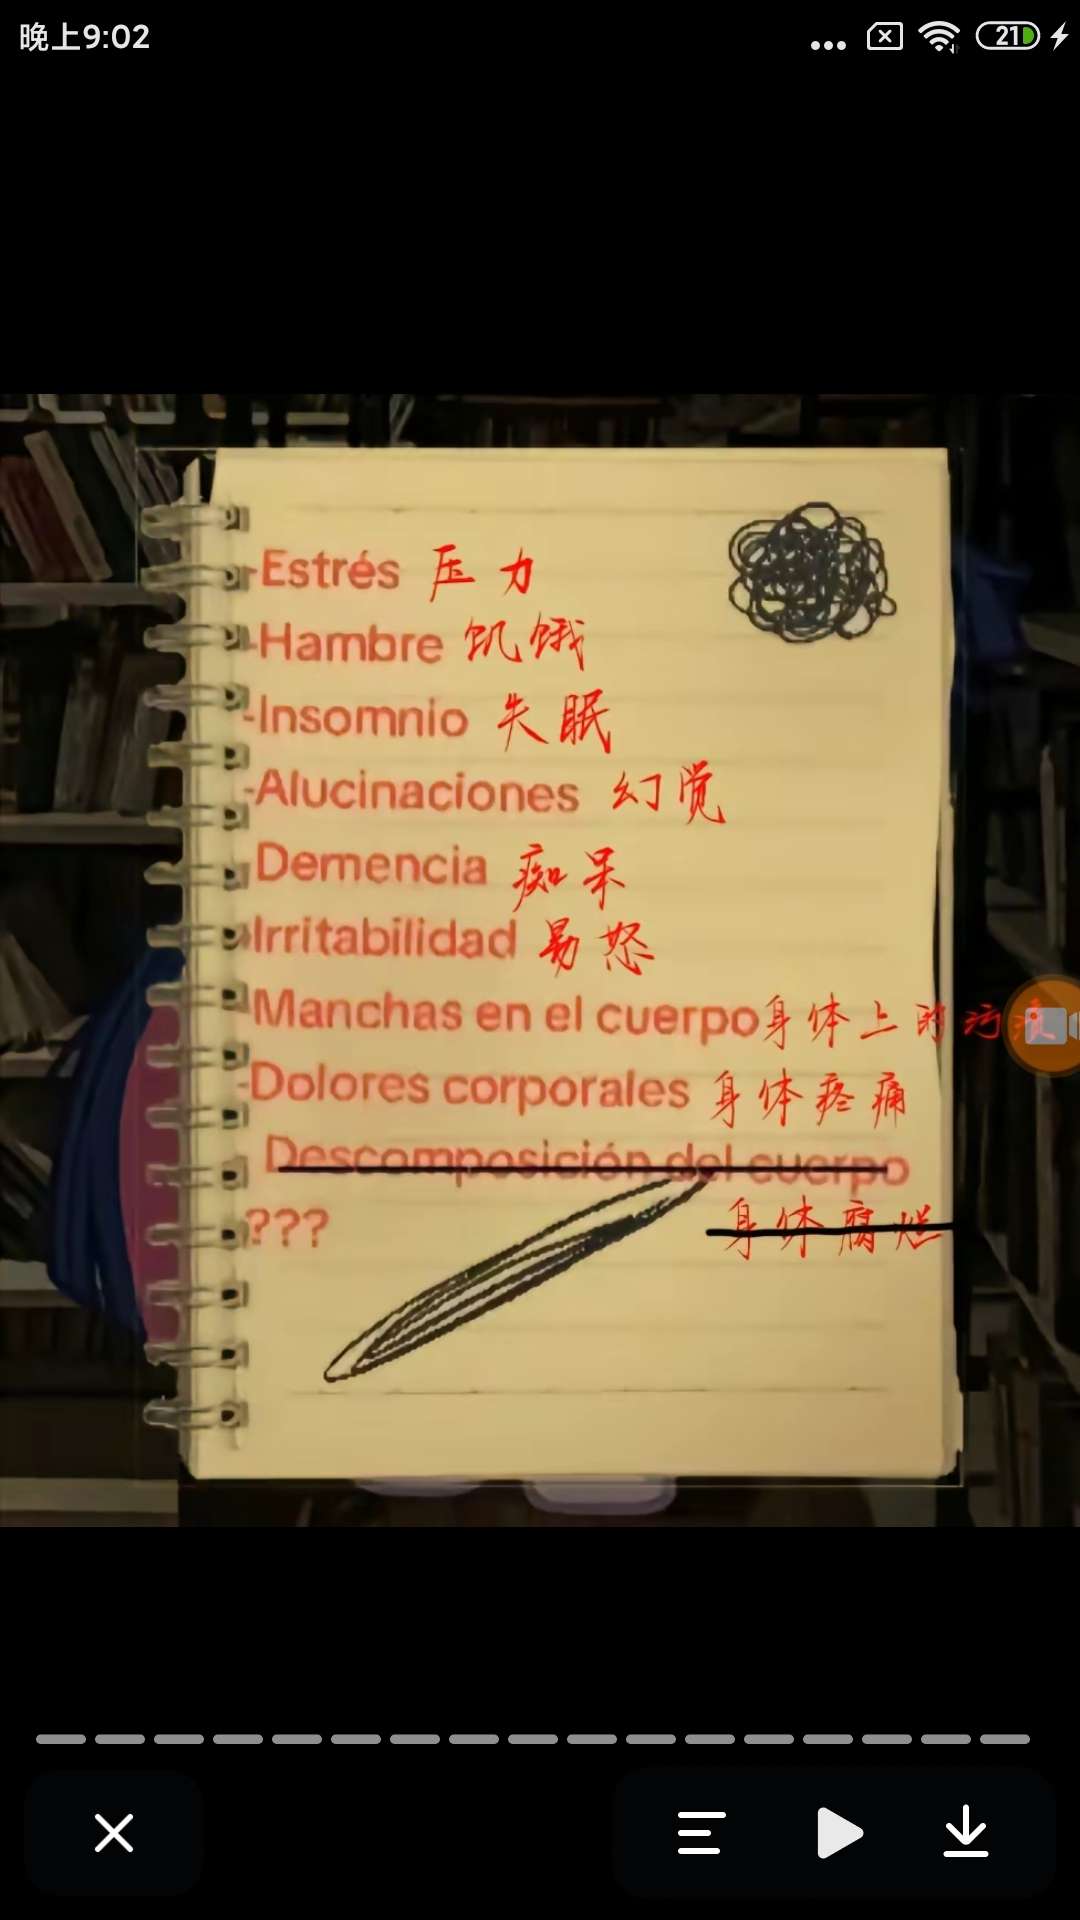 晚上9:02
21
-Estrés 压力
-Hambre 饥饿
-Insomnio 失眠
-Alucinaciones 幻觉
Demencia 痴呆
Irritabilidad 易怒
Manchas en el cuerpo 身体上的污
-Dolores corporales 身体疼痛
Descomposición del cuerpo
??? 身体腐烂